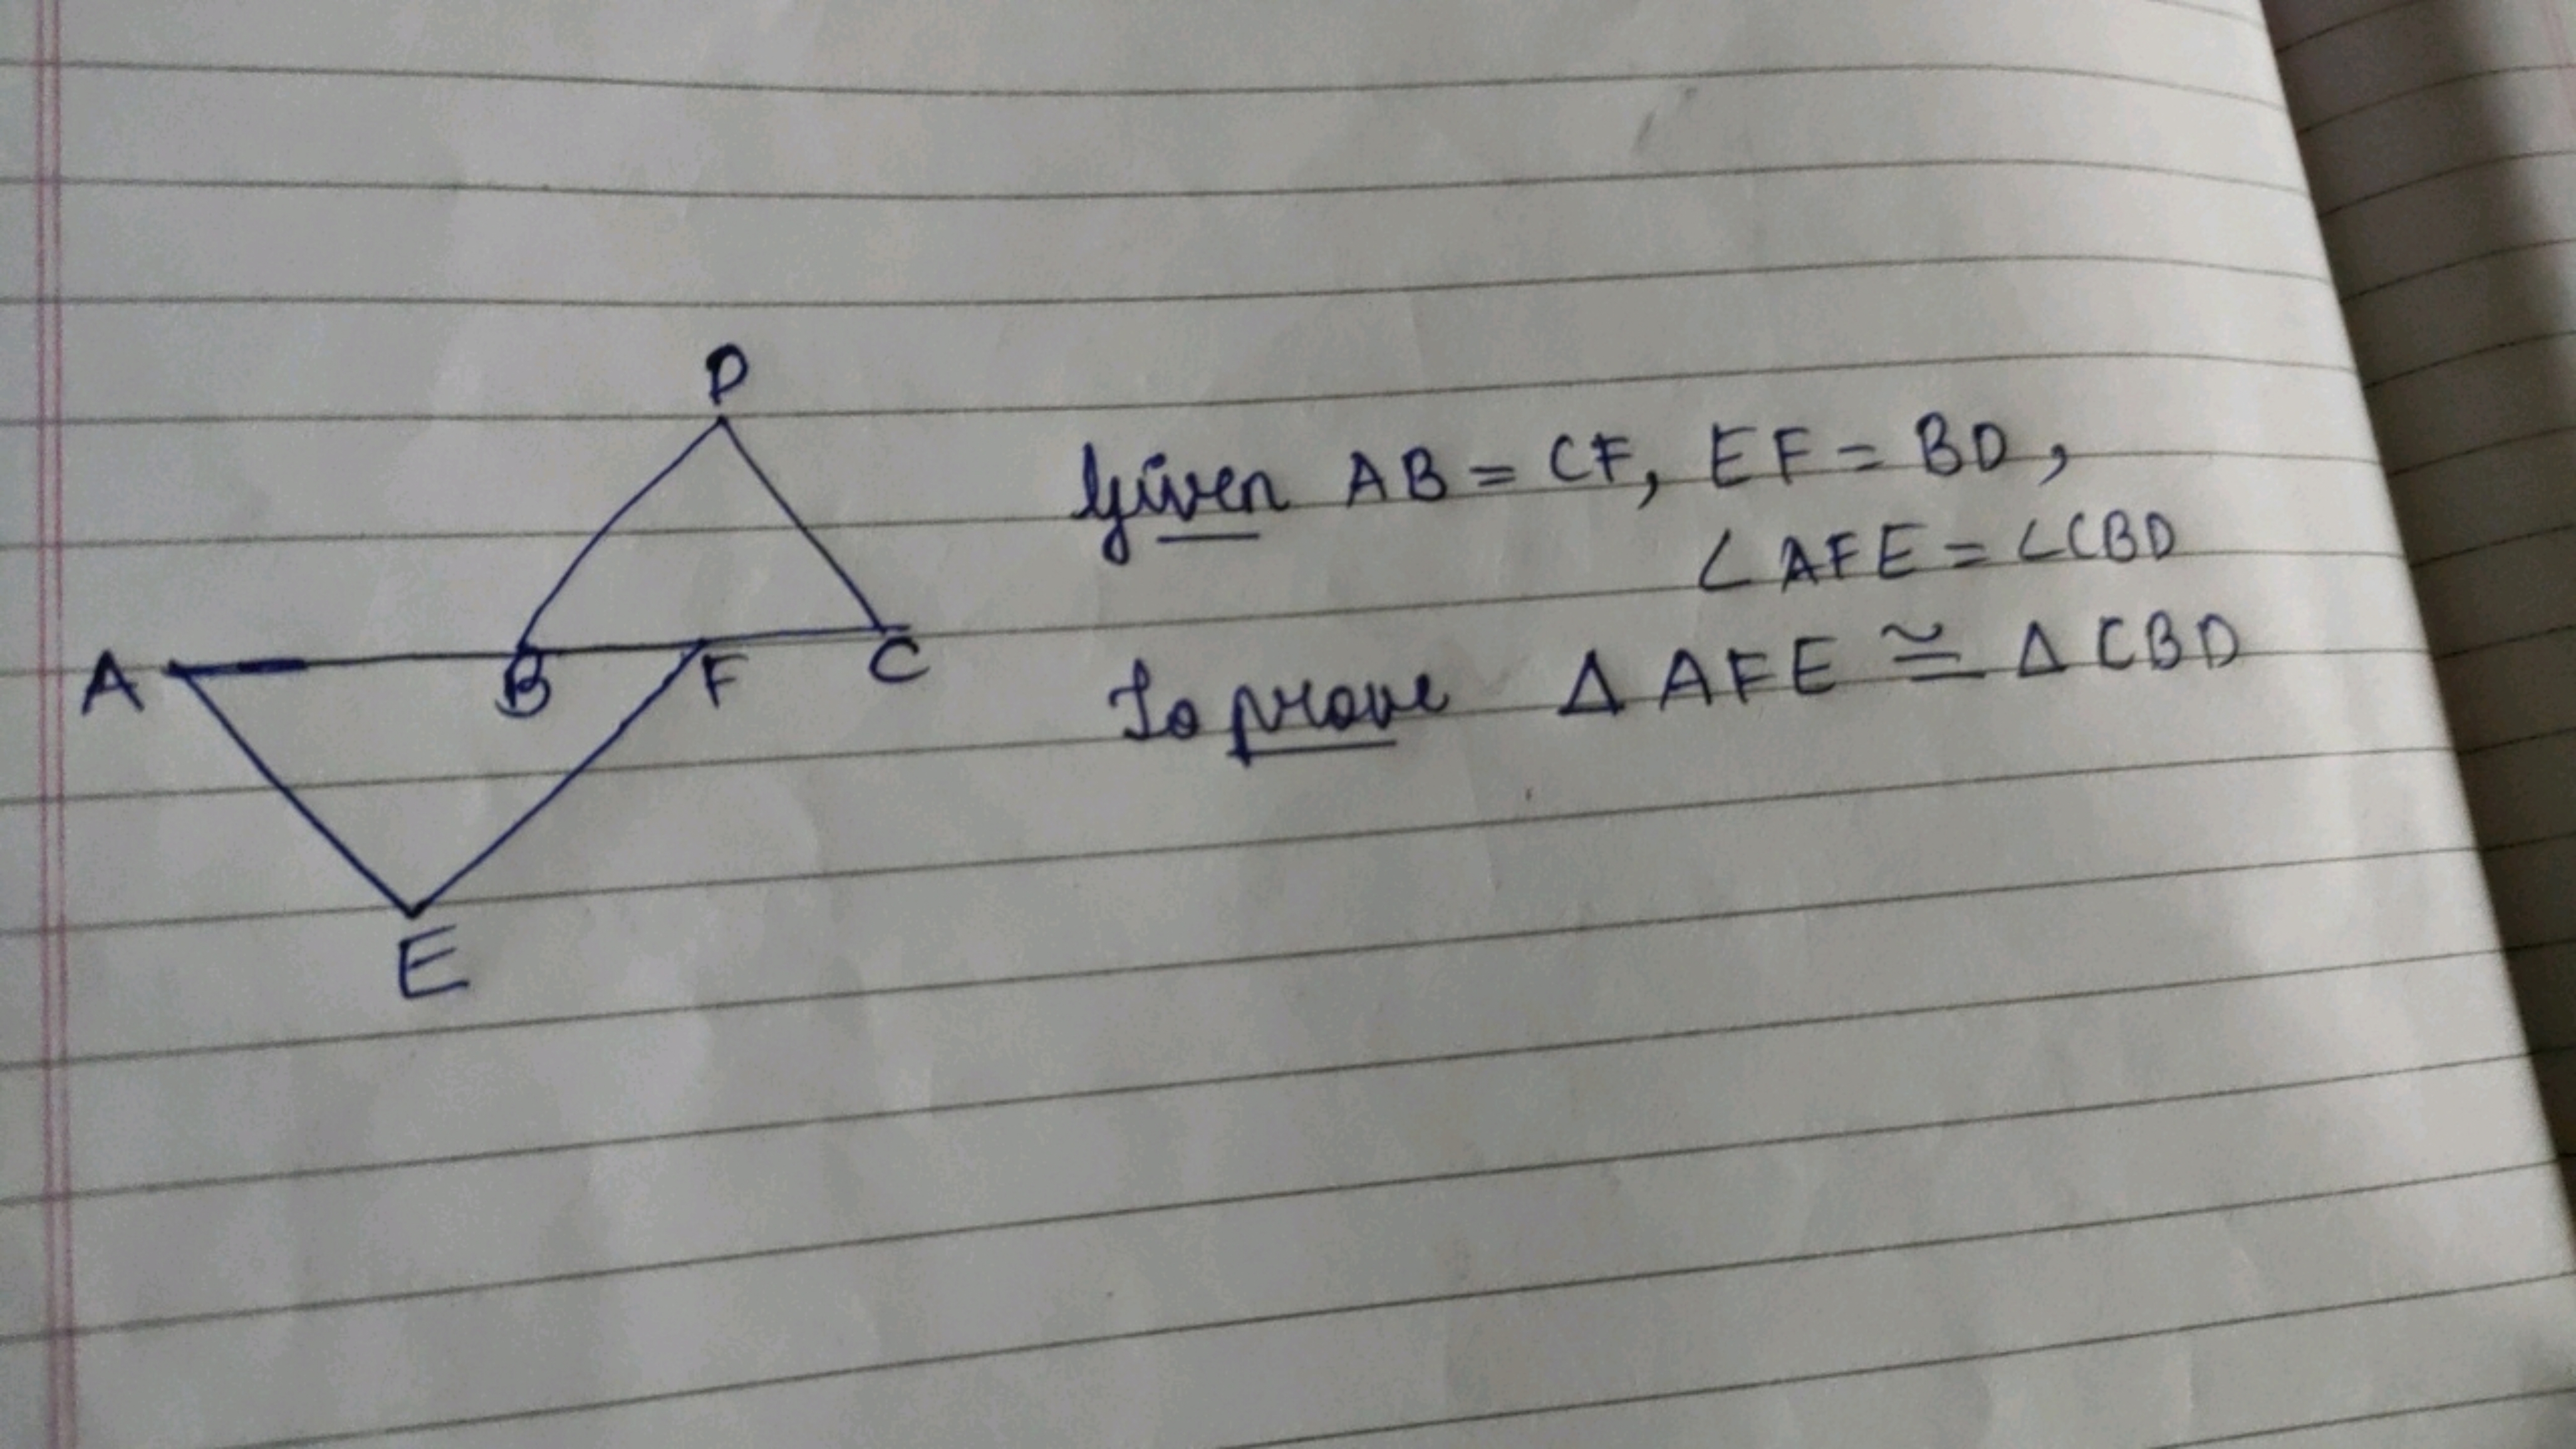 D
A B F C
E
Given AB = CF, EF = BD,
∠AFE = ∠CBD
To prove Δ AFE ≅ Δ CBD